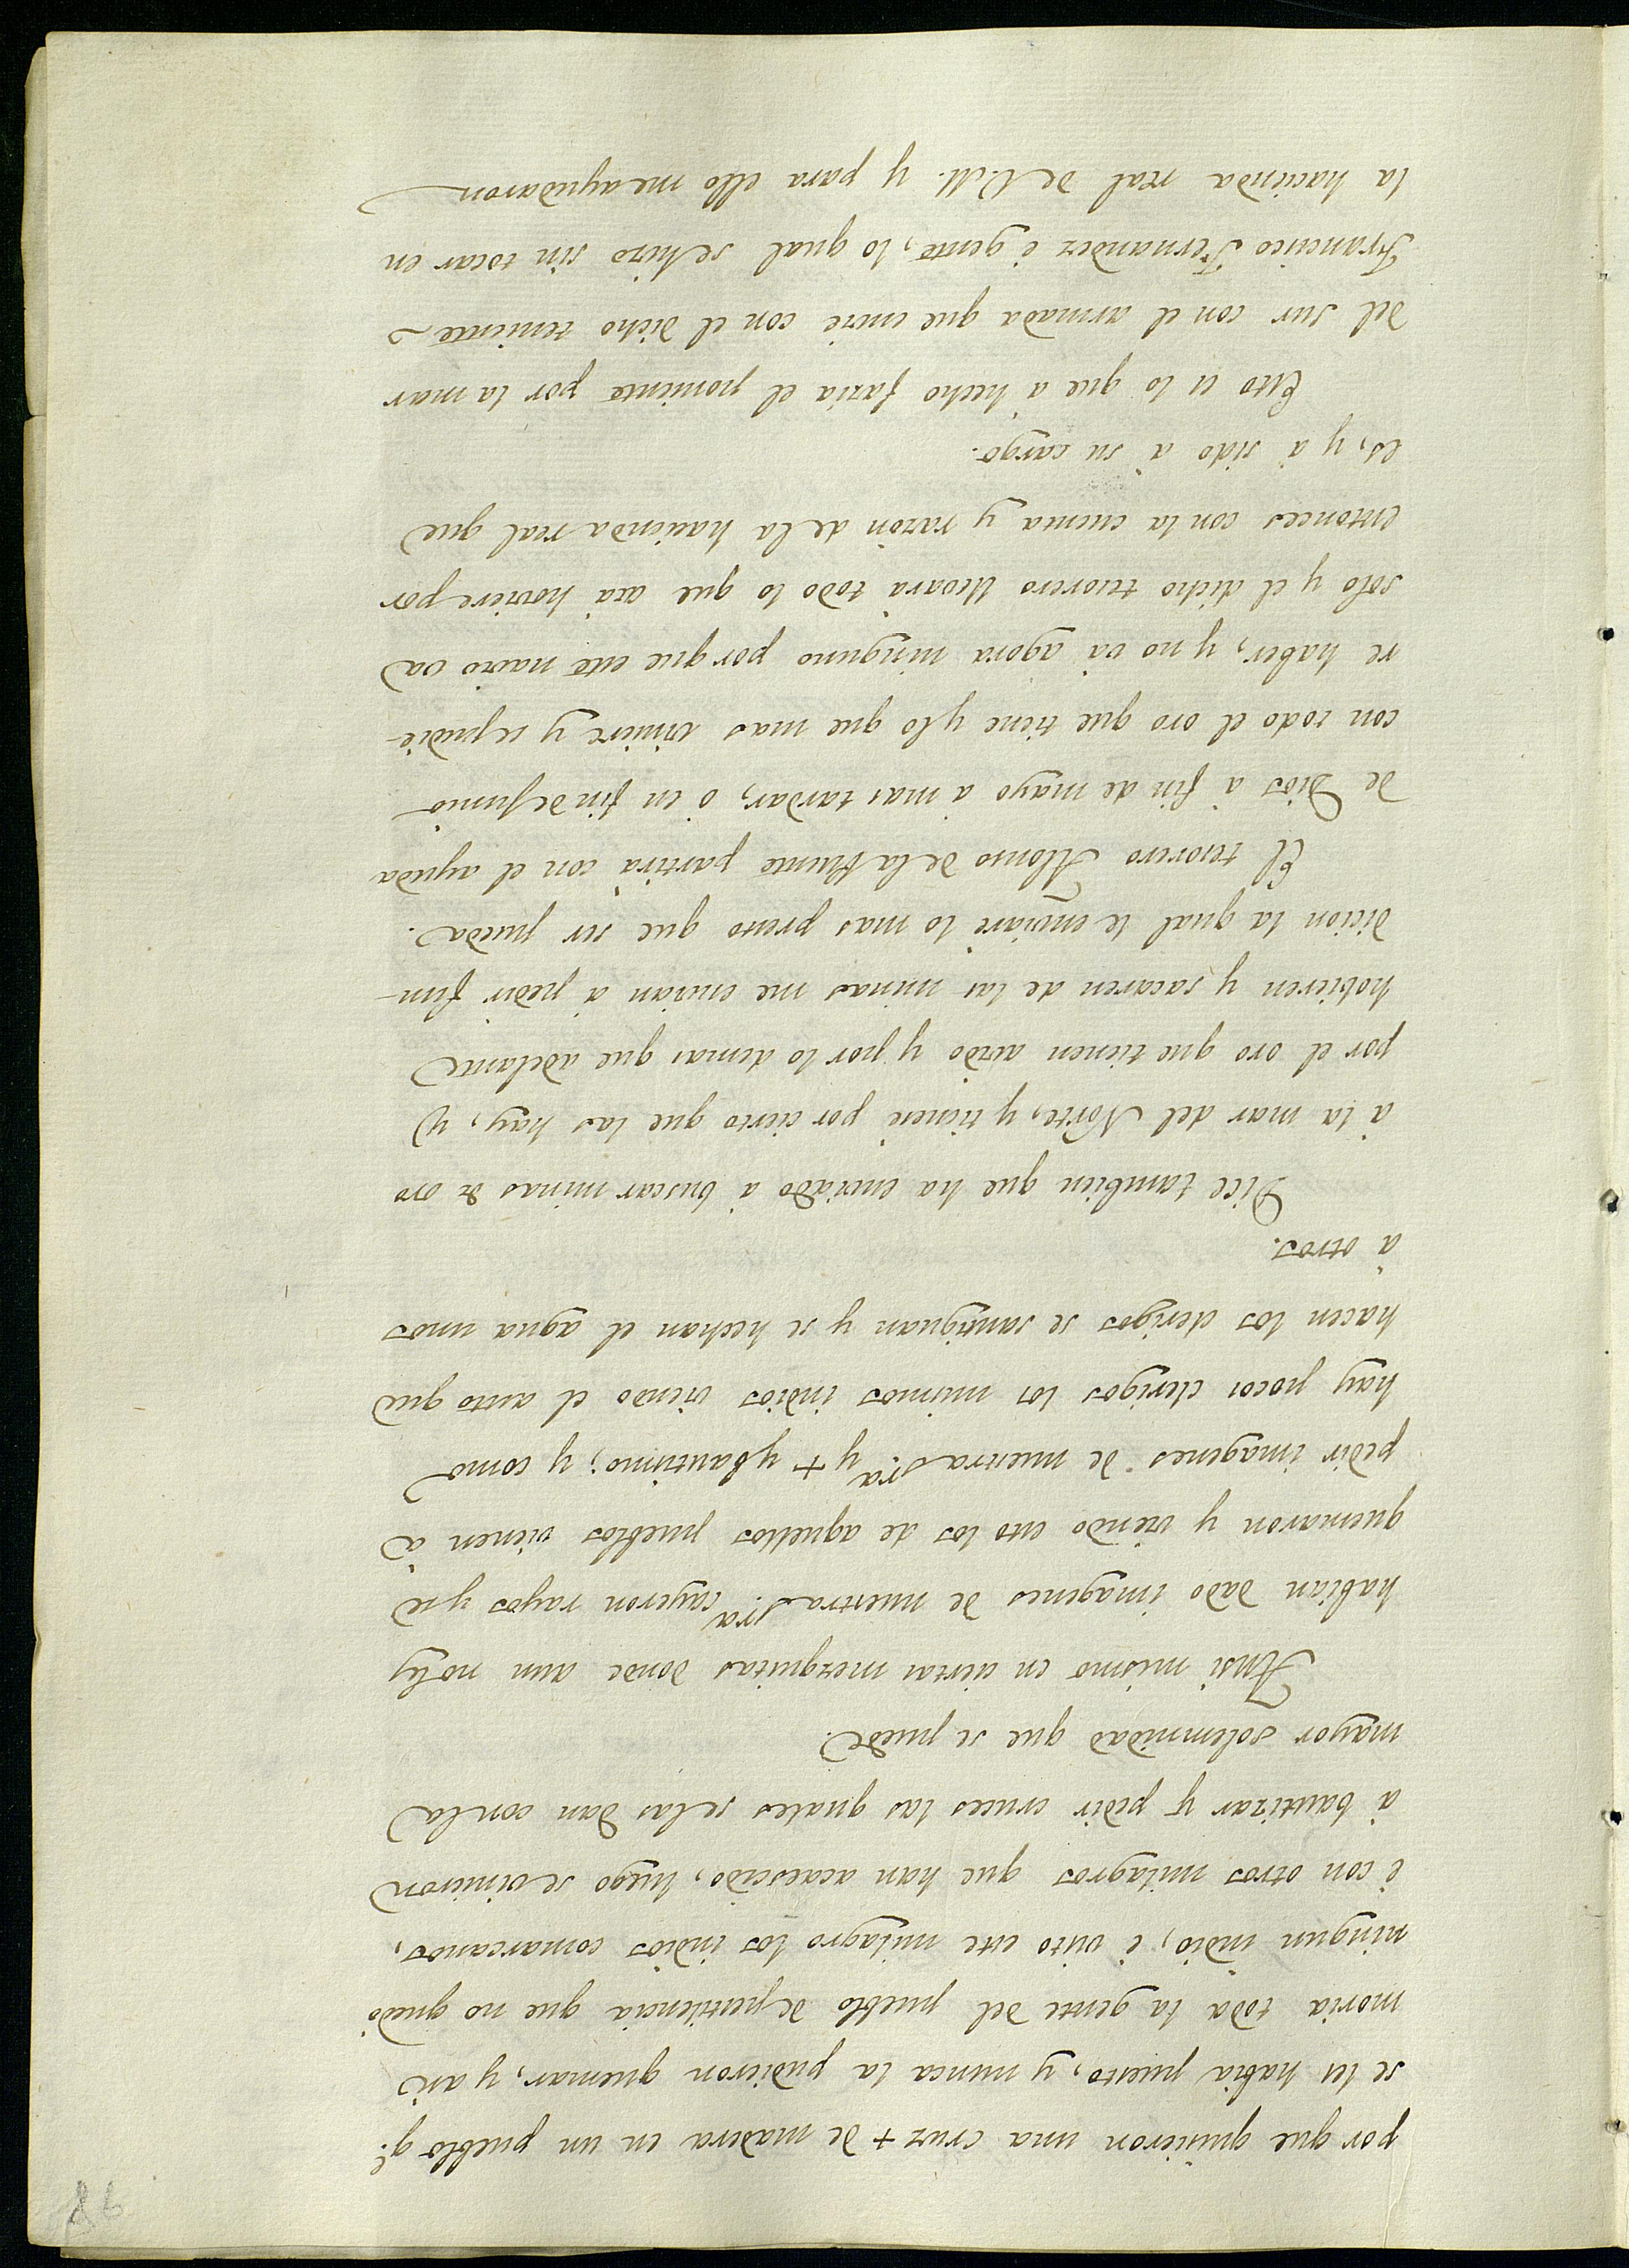 86
por que quisieron una cruz + de madera en un pueblo q.e
se les habia puesto, y nunca la pudieron quemar, y asi
moria toda la gente del pueblo de pestilencia que no quedò
ningun indio, è visto este milagro los indios comarcanos,
è con otros milagros que han acaescido, luego se vinieron
à bautizar y pedir cruces las quales se las dan con la
mayor solemnidad que se puede.
Ansi mismo en ciertas mezquitas donde aun no les
habian dado imagenes de nuestra S.ra cayeron rayos y se
quemaron y viendo esto los de aquellos pueblos vienen à
pedir imagenes de nuestra S.ra y + y bautismo; y como
hay pocos clerigos los mismos indios viendo el auto que
hacen los clerigos se santiguan y se hechan el agua unos
à otros.
Dice tambien que ha enviado à buscar minas de oro
à la mar del Norte, y tienese por cierto que las hay, y
por el oro que tienen avido y por lo demas que adelante
hobieren y sacaren de las minas me envian à pedir fun-
dicion la qual le enviarè lo mas presto que ser pueda.
El tesorero Alonso de la Puente partirà con el ayuda
de Dios à fin de mayo à mas tardar, ò en fin de junio
con todo el oro que tiene y lo que mas viniere y se pudie-
re haber, y no và agora ninguno por que este navio va
solo y el dicho tesorero llevarà todo lo que acà hoviere por
entonces con la cuenta y razòn de la hacienda real que
es, y à sido à su cargo.
Esto es lo que à hecho fazia el poniente por la mar
del Sur con el armada que envie con el dicho teniente
Francisco Fernandez è gente, lo qual se hizo sin tocar en
la hacienda real de V.M. y para ello me ayudaron